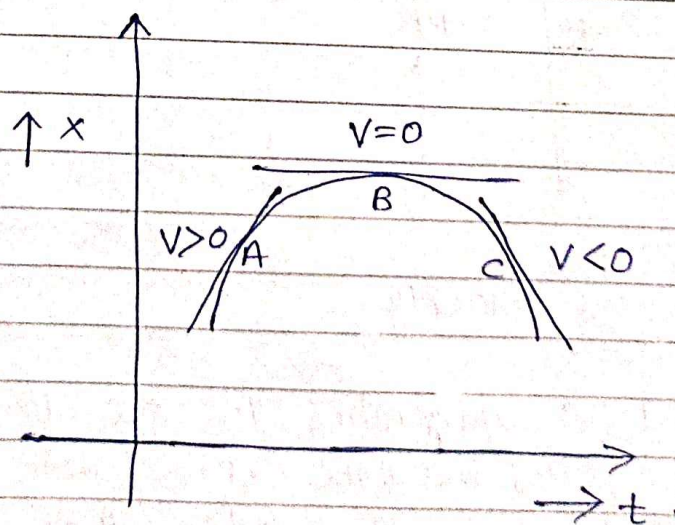 ↑ x
V=0
B
V>0
A
C
V<0
→ t